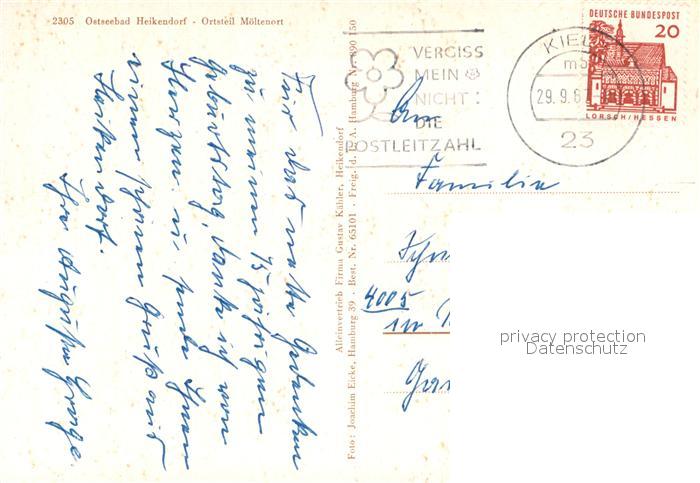 2305 Ostseebad Heikendorf - Ortsteil Möltenort
Für das nette Gedenken
zu meinem 75 jährigen
Geburtstag, danke ich von
Herzen u. sende Ihnen
einen schönen Gruß aus
Heikendorf.
Ihre
Alleinvertrieb Firma Gustav Kähler, Heikendorf
Foto: Joachim Eicke, Hamburg 39 · Best. Nr. 65101 · Freig. d. L. A. Hamburg Nr. 890 150
VERGISS
MEIN
NICHT:
DIE
POSTLEITZAHL
KIEL
29. 9. 6
23
DEUTSCHE BUNDESPOST
20
LORSCH/HESSEN
An
Familie
4005
in
privacy protection
Datenschutz